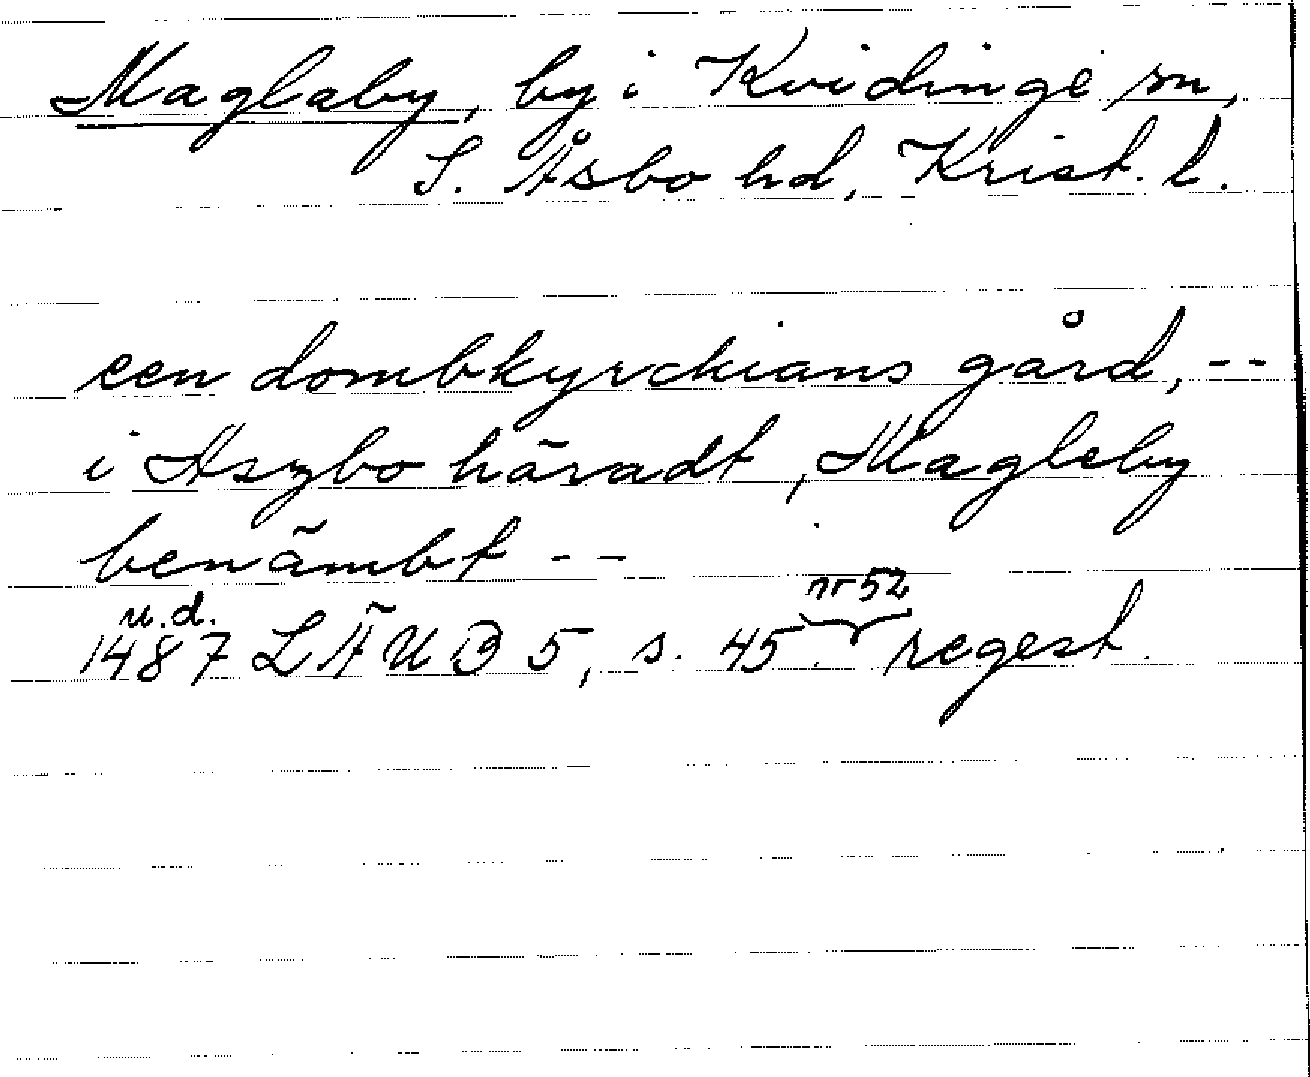 Maglaby, by i Kvidinge sn,
S. Åsbo hd, Krist. l.
een dombkyrckians gård, --
i Aszbo häradt, Magleby
benämbt --
u.d. nr 52
1487 LÄUB 5, s. 45. regest.